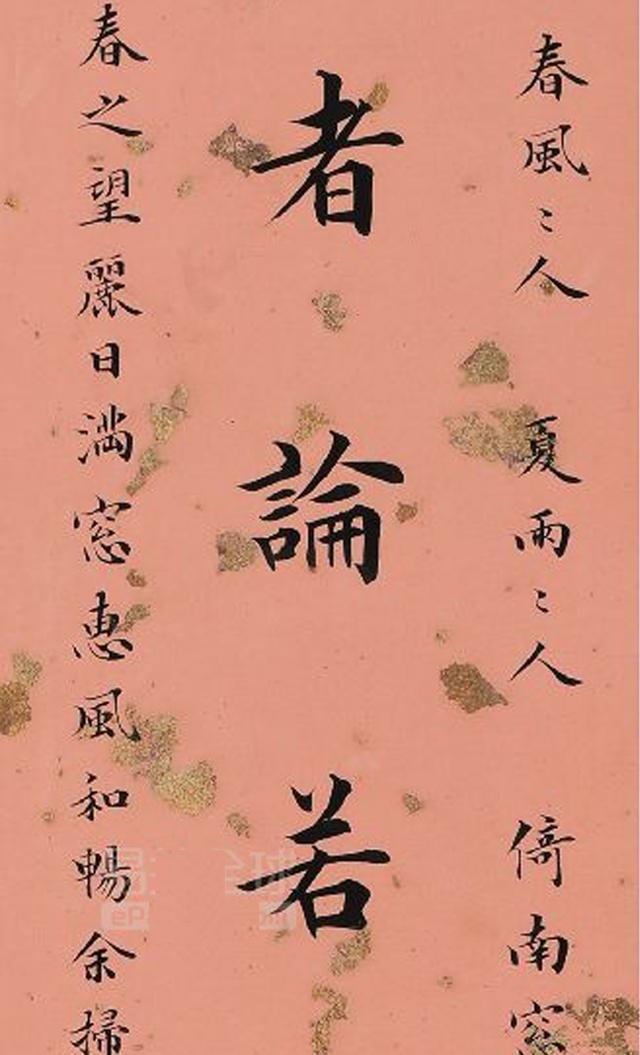 春風〻人 夏雨〻人 倚南窓
者論若
春之望麗日满窓惠風和暢余掃